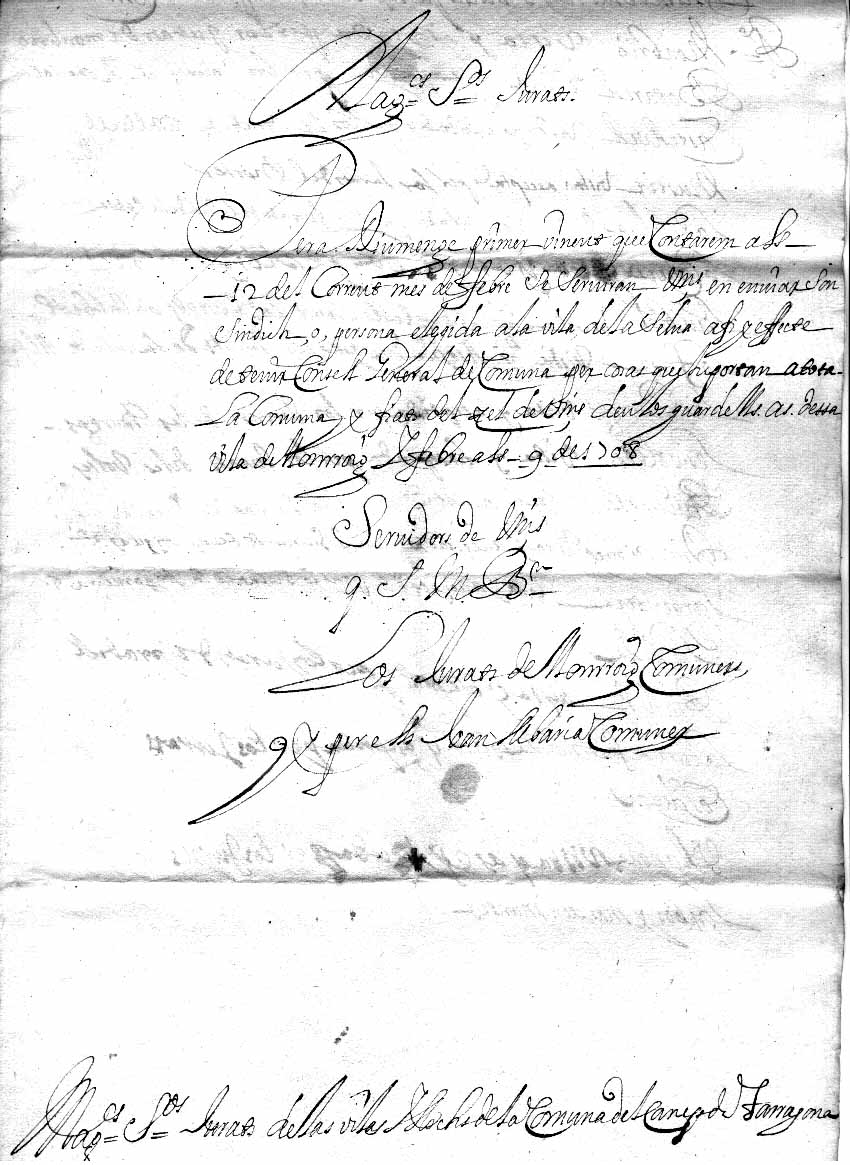 Mag.cs S.ors Jurats.
Pera Diumenge primer vinent que Contarem als
12 del Corrent mes de febre se serviran Vms en enviar son
Sindich, o, persona elegida a la vila de la Selva afi y effecte
de tenir Consell General de Comuna per cosas que importan a tota
La Comuna y fiats del zel de Vms deu los guarde Ms. As. dessa
vila de Monrroig y febre als 9 de 1708
Servidors de Vms
q. S. M. B.
Los Jurats de Monrroig Comuners,
y per ells Joan Comuner
Mag.cs S.ors Jurats de las vilas y llochs de la Comuna del Camp de Tarragona